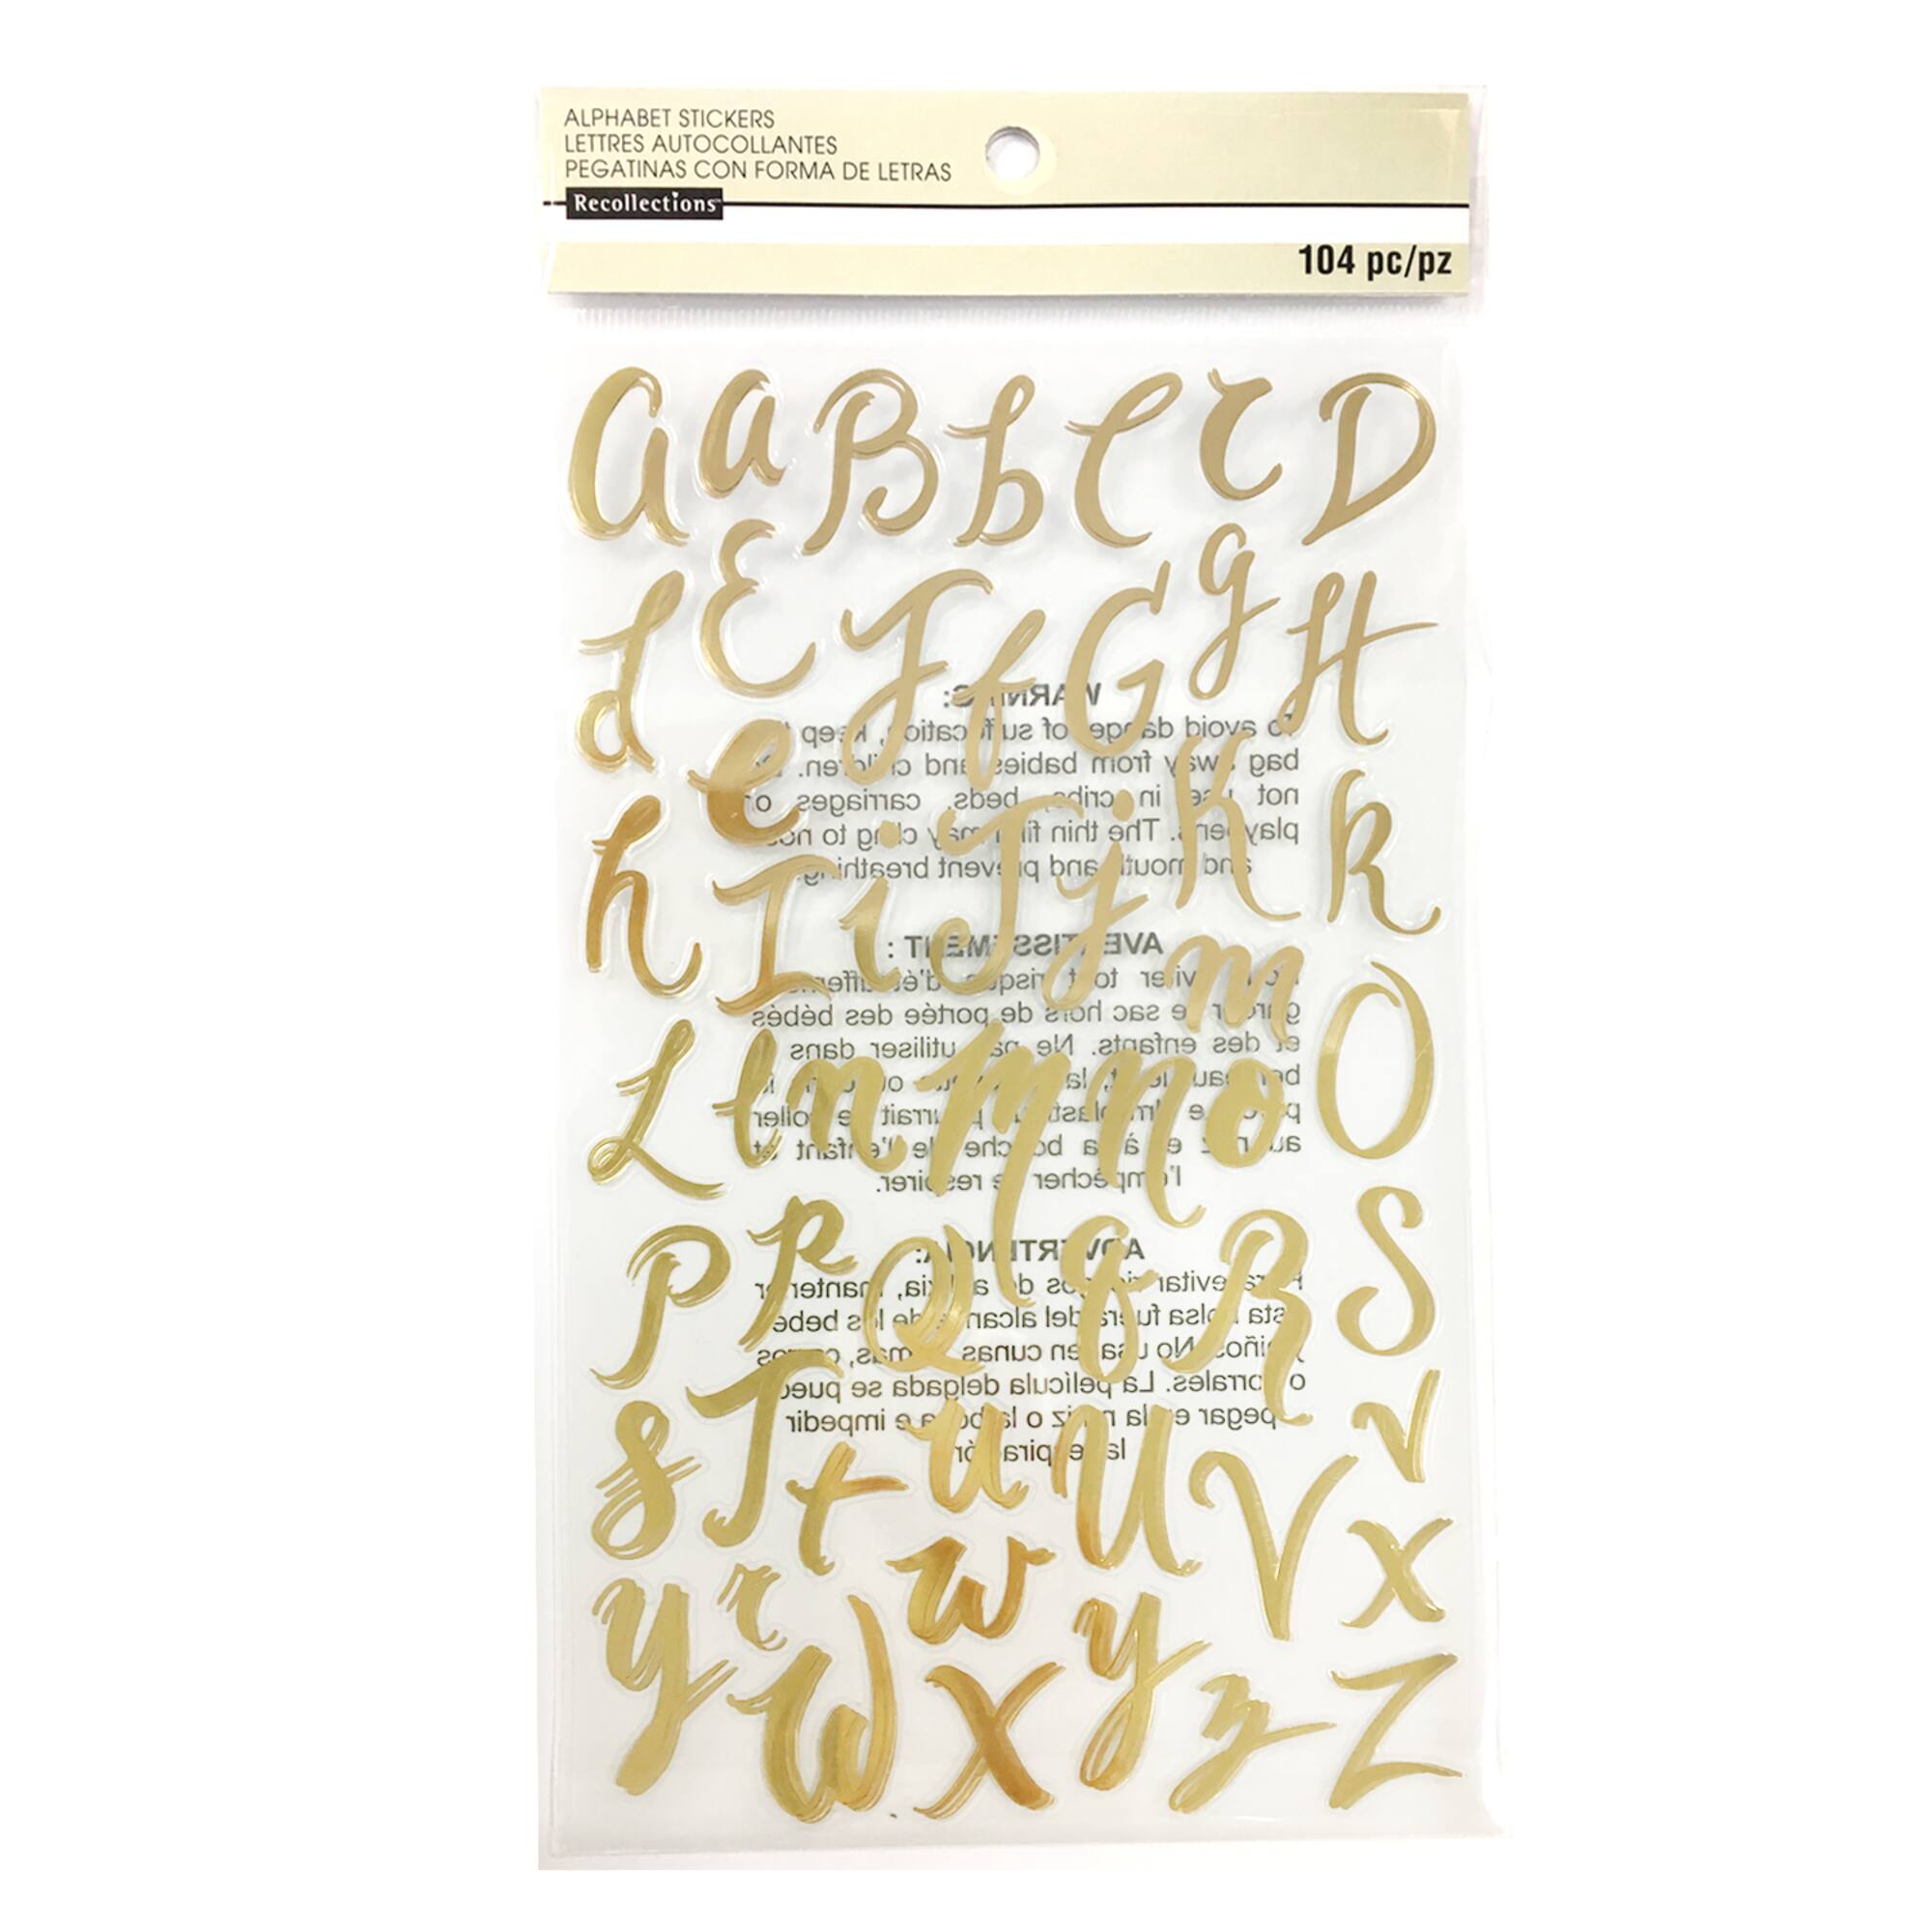 ALPHABET STICKERS
LETTRES AUTOCOLLANTES
PEGATINAS CON FORMA DE LETRAS
Recollections™
104 pc/pz
A a B b C c D
d E F f G g H
h e I i J j K k
L l n M N m o O
P p Q q R S
s T t u U V v
Y r W w X y z Z x
WARNING:
To avoid danger of suffocation, keep
bag away from babies and children. Do
not use in cribs, beds, carriages or
playpens. The thin film may cling to nose
and mouth and prevent breathing.
AVERTISSEMENT :
éviter tout risque d'étouffement
garder ce sac hors de portée des bébés
et des enfants. Ne pas utiliser dans
ou
pourrait se coller
au nez et à la bouche de l'enfant et
l'empêcher de respirer.
ADVERTENCIA:
Para evitar riesgos de asfixia, mantener
esta bolsa fuera del alcance de los bebés
y niños. No usar en cunas, camas,
o corrales. La película delgada se puede
pegar en la nariz o la boca e impedir
la respiración